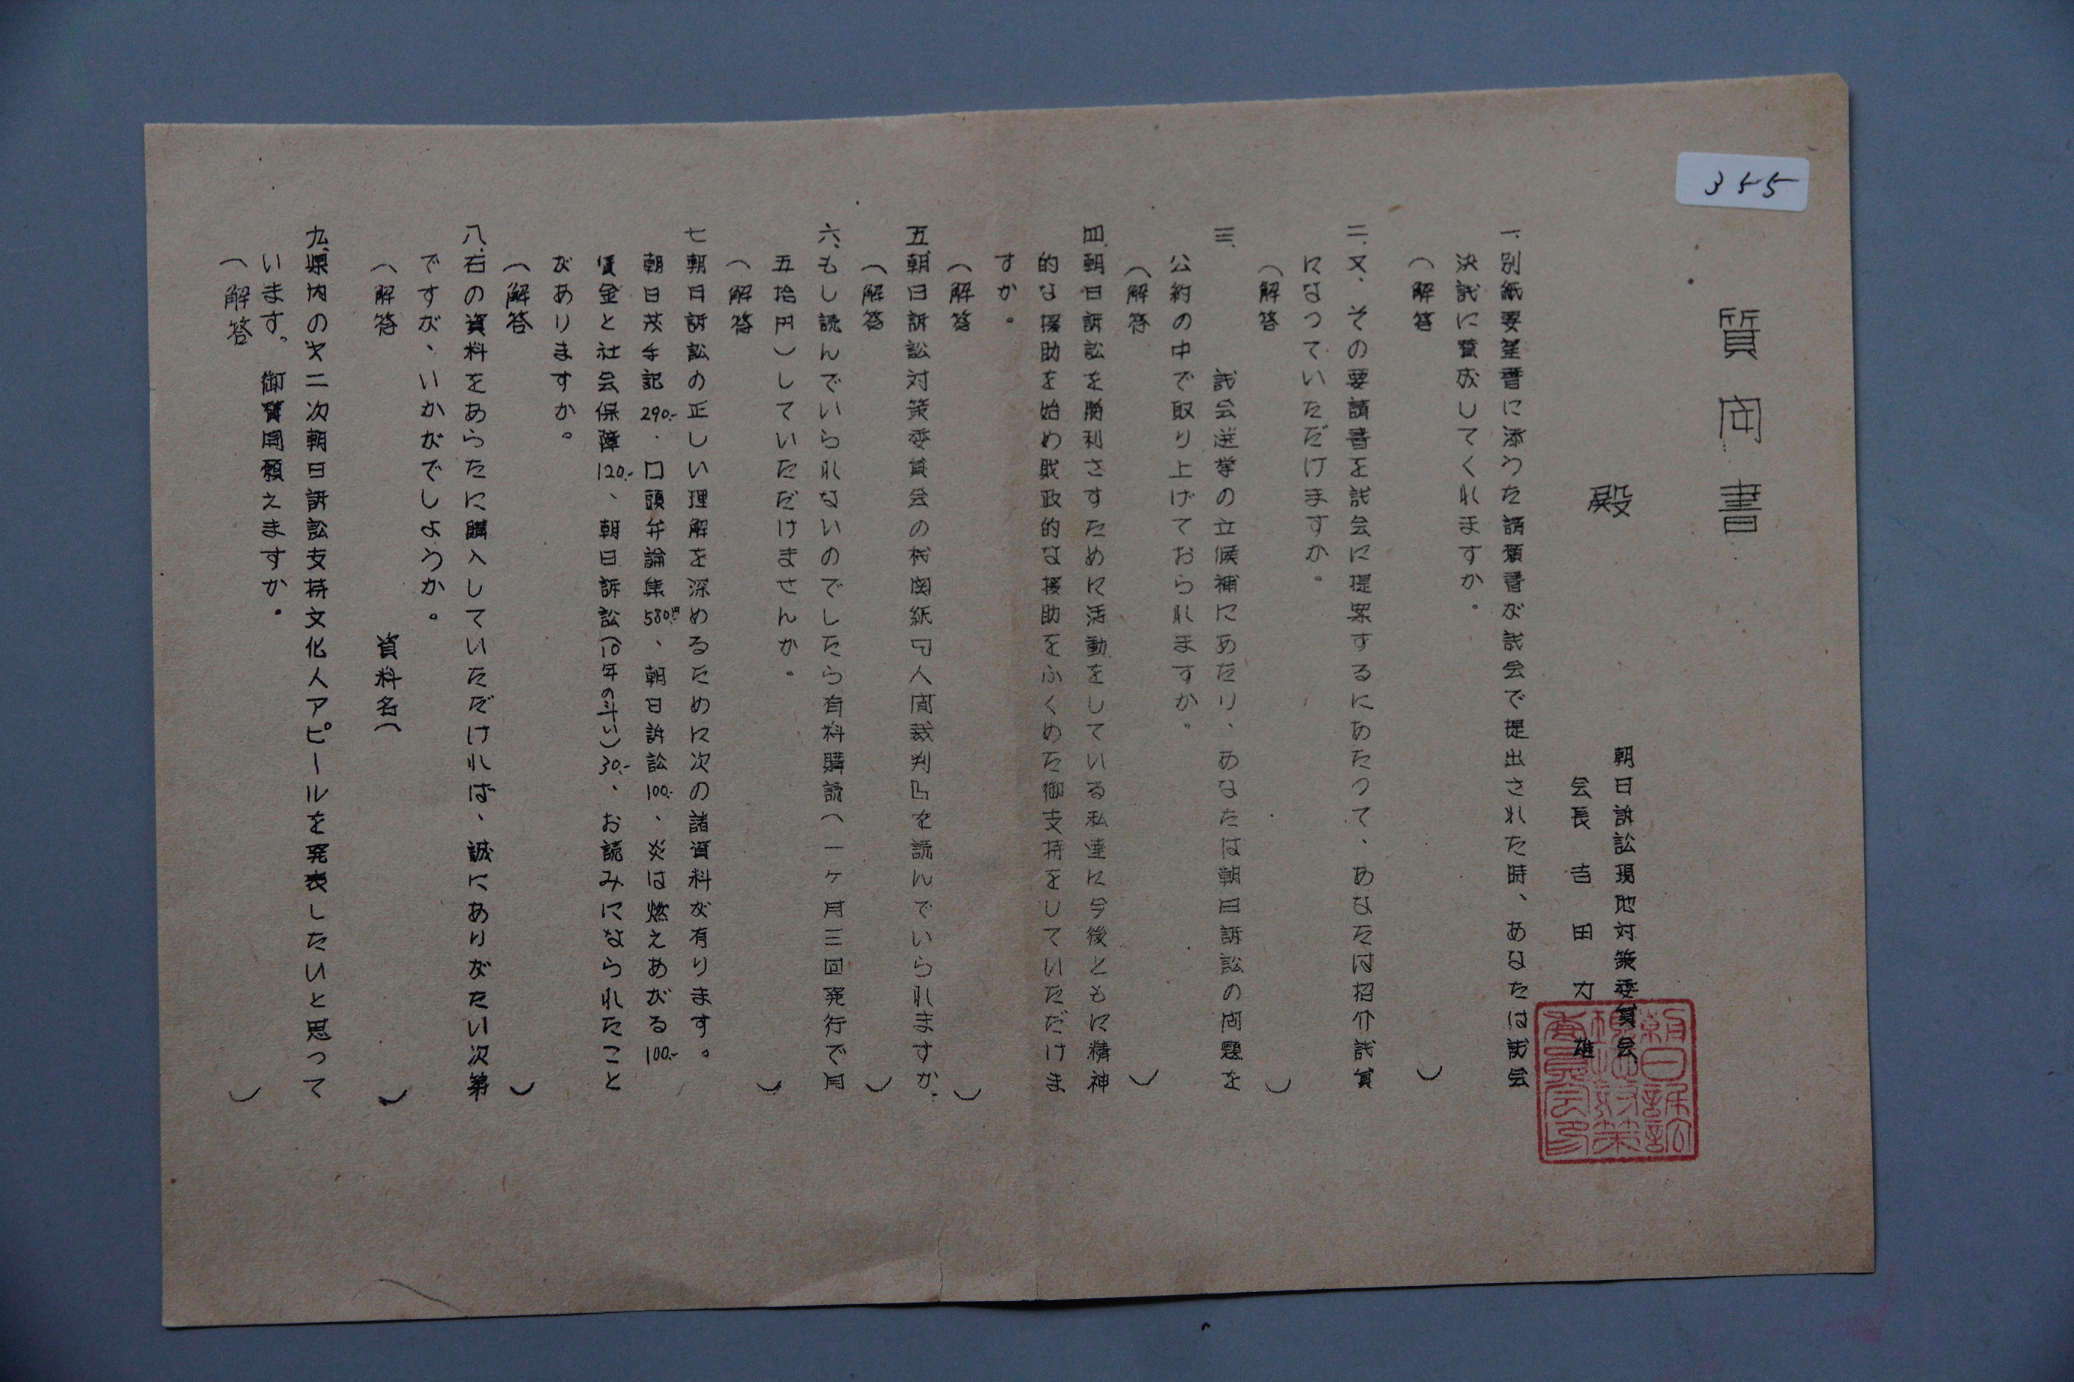 355
質问書
殿
朝日訴訟現地対策委員会
会長 吉田力雄
朝日訴訟
現地対策
委員会印
一、別紙要望書に添つた請願書が議会で提出された時、あなたは議会
決議に賛成してくれますか。
(解答 )
二、又、その要請書を議会に提案するにあたつて、あなたは招介議員
になつていただけますか。
(解答 )
三、 議会選挙の立候補にあたり、あなたは朝日訴訟の问題を
公約の中で取り上げておられますか。
(解答 )
四、朝日訴訟を勝利さすために活動をしている私達に今後ともに精神
的な援助を始め財政的な援助をふくめた御支持をしていただけま
すか。
(解答 )
五、朝日訴訟対策委員会の機関紙「人间裁判」を読んでいられますか。
(解答 )
六、もし読んでいられないのでしたら有料購読(一ヶ月三回発行で月
五拾円)していただけませんか。
(解答 )
七、朝日訴訟の正しい理解を深めるために次の諸資料が有ります。
朝日茂手記290.-、口頭弁論集580円、朝日訴訟100.-、炎は燃えあがる100.-
賃金と社会保障120.-、朝日訴訟(10年の斗い)30.-、お読みになられたこと
がありますか。
(解答 )
八、右の資料をあらたに購入していただければ、誠にありがたい次第
ですが、いかがでしようか。
(解答 資料名( )
九、県内の才二次朝日訴訟支持文化人アピールを発表したいと思つて
います。御賛同願えますか。
(解答 )